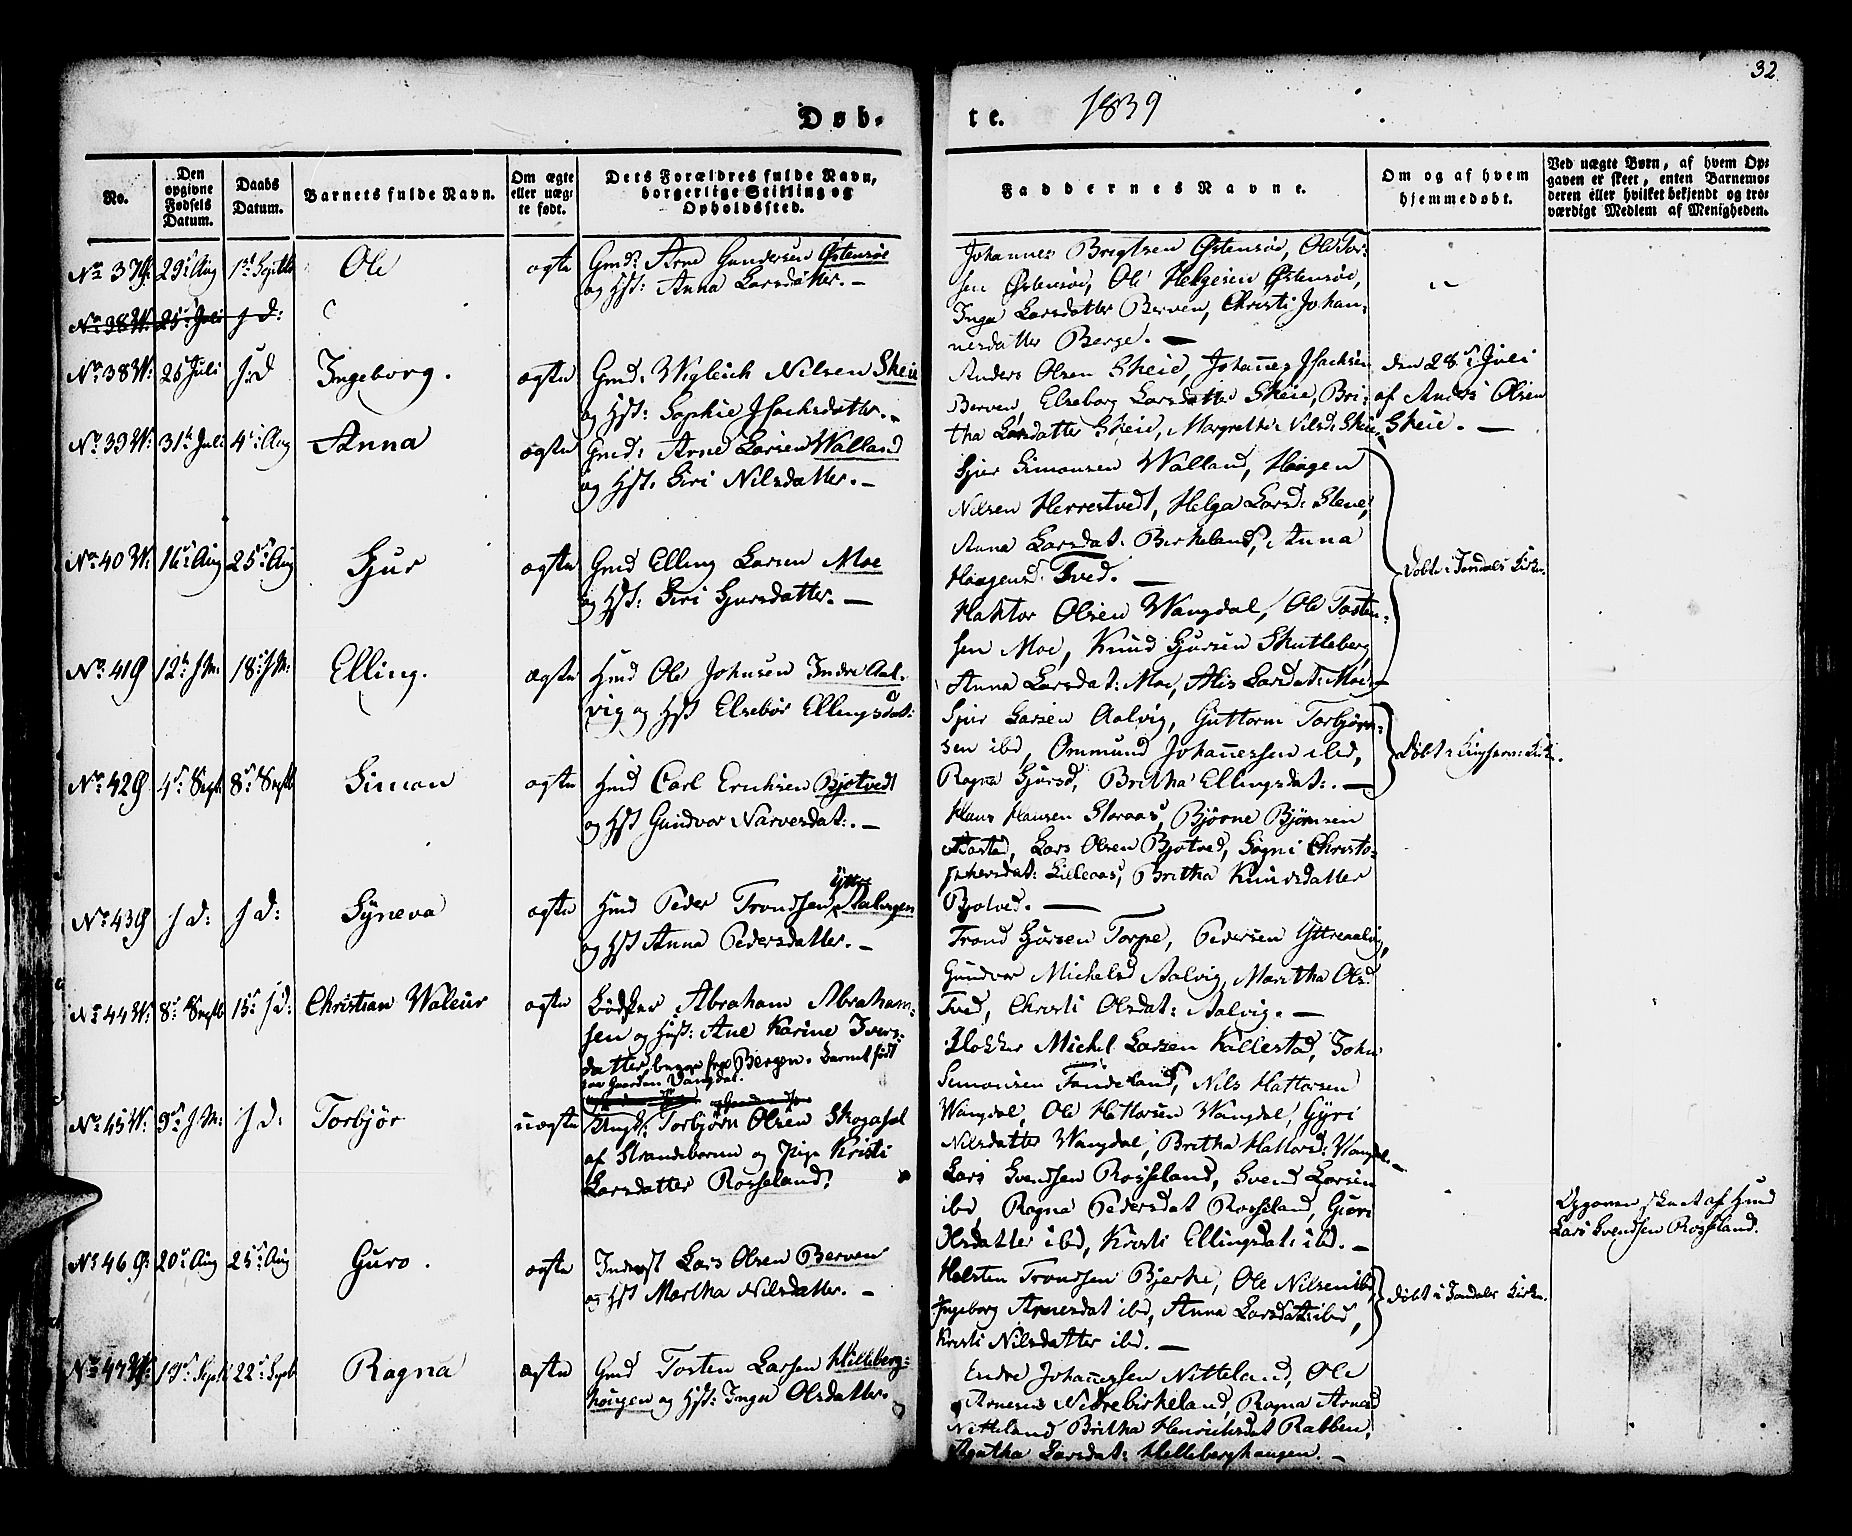 32
Døb-
te. 1839
No.
Den
opgivne
Fødsels
Datum.
Daabs
Datum.
Barnets fulde Navn.
Om ægte
eller uæg-
te født.
Dets Forældres fulde Navn,
borgerlige Stilling og
Opholdssted.
Faddernes Navne.
Om og af hvem
hjemmedøbt.
Ved uægte Børn, af hvem Op-
gaven er skeet, enten Barnemo-
deren eller hvilket bekjendt og tro-
værdigt Medlem af Menigheden.
No 37 29 Aug 1st Septb Ole ægte Gmd: Arne Gundersen Østensøe
og Hst: Anna Larsdatter. —
Johannes Brigtsen Østensøe, Ole Tor-
sen Østensøe, Ole Helgesen Østensøe,
Inga Larsdatter Berven, Christi Johan-
nesdatter Berge. —
No 38 W: 25 Juli s: d:
No 38 W: 25 Juli s: d Ingeborg. ægte Gmd: Wigleich Nilsen Skeie
og Hst: Sophie Isachsdatter. —
Anders Olsen Skeie, Johannes Isachsen
Berven, Elseborg Larsdatter Skeie, Bri-
tha Larsdatter Skeie, Margrethe Nilsd: Skeie
den 28 Juli
af Anders Olsen
Skeie. —
No 39 W: 31 Juli 4 Aug Anna ægte Gmd: Arne Larsen Walland
og Hst: Siri Nilsdatter. —
Sjur Simonsen Walland, Haagen
Nilsen Herrestvedt, Helga Larsd: Stene,
Anna Larsdat: Birkeland, Anna
Haagensd: Tved. —
Døbt i Jondals Kirke.
No 40 W: 16 Aug 25 Aug Sjur ægte Gmd Elling Larsen Moe
og Hst: Siri Sjursdatter. —
Haktor Olsen Wangdal, Ole Tosten-
sen Moe, Knud Sjursen Skutleberg,
Anna Larsdat: Moe, Alis Larsdat: Moe —
No 41 12 s: M: 18 s: M: Elling. ægte Hmd Ole Johnsen Indre Aal-
vig og Hst Elsebør Ellingsdat:
Sjur Larsen Aalvig, Guttorm Torbjørn-
sen ibd, Ommund Johannessen ibd,
Ragna Sjursd, Britha Ellingsdat:. —
No 42 4 Septb 8 Septb Simon ægte Hmd Carl Erichsen Bjotvedt
og Hst Gundvor Narvesdat:. —
Hans Hansen Storaas, Bjørne Bjørnsen
Lars Olsen Bjotved, Sogni Christo-
phersdat: Lilleaas, Britha Knudsdatter
Bjotved. —
No 43 s d: s d: Syneva ægte Hmd Peder Trondsen Yttre Aalvigen
og Hst Anna Pedersdatter. —
Trond Sjursen Torpe, Pedersen Yttreaalvig,
Gundvor Michelsd Aalvig, Maritha Olsd.
Tved, Christi Olsdat: Aalvig. —
No 44 W: 8 Septb 15 s d: Christian Waleur ægte Bødker Abraham Abraham-
sen og Hst: Ane Karine Ivers-
datter, fra Bergen. Barnet født
paa Gaarden Vangdal.
Michel Larsen Kallestad, John
Simonsen Tandeland, Nils Hattorsen
Wangdal, Ole Hattorsen Wangdal, Gyri
Nilsdatter Wangdal, Britha Hattorsd: Wangdal. —
No 45 W: 9 s M: s d: Torbjør uægte Ungk: Torbjørn Olsen Skogasel
af Strandebarm og Pige Kristi
Larsdatter Rosseland.
Lars Svendsen Rosseland, Svend Larsen
ibd, Ragna Pedersdat Rosseland, Guro
Olsdatter ibd, Kristi Ellingsdat: ibd. —
Opgaven skeet af Hmd
Lars Svendsen Rosseland.
No 46 20 Aug 25 Aug Guro. ægte Inderst Lars Olsen Berven
og Hst Martha Nilsdatter. —
Halsten Trondsen Bjerke, Ole Nilsen ibd,
Ingeborg Arnesdat ibd, Anna Larsdat: ibd,
Kristi Nilsdatter ibd. —
Døbt i Jondals Kirke.
No 47 W: 19 Septb 22 Septb Ragna ægte Gmd Tosten Larsen Hilleberg-
haugen og Hst: Inga Olsdatter.
Endre Johannessen Nitteland, Ole
Arnesen Nedrebirkeland, Ragna Arnesd
Nitteland Britha Henrichsdat Rabben,
Agatha Larsdat: Helleberghaugen. —